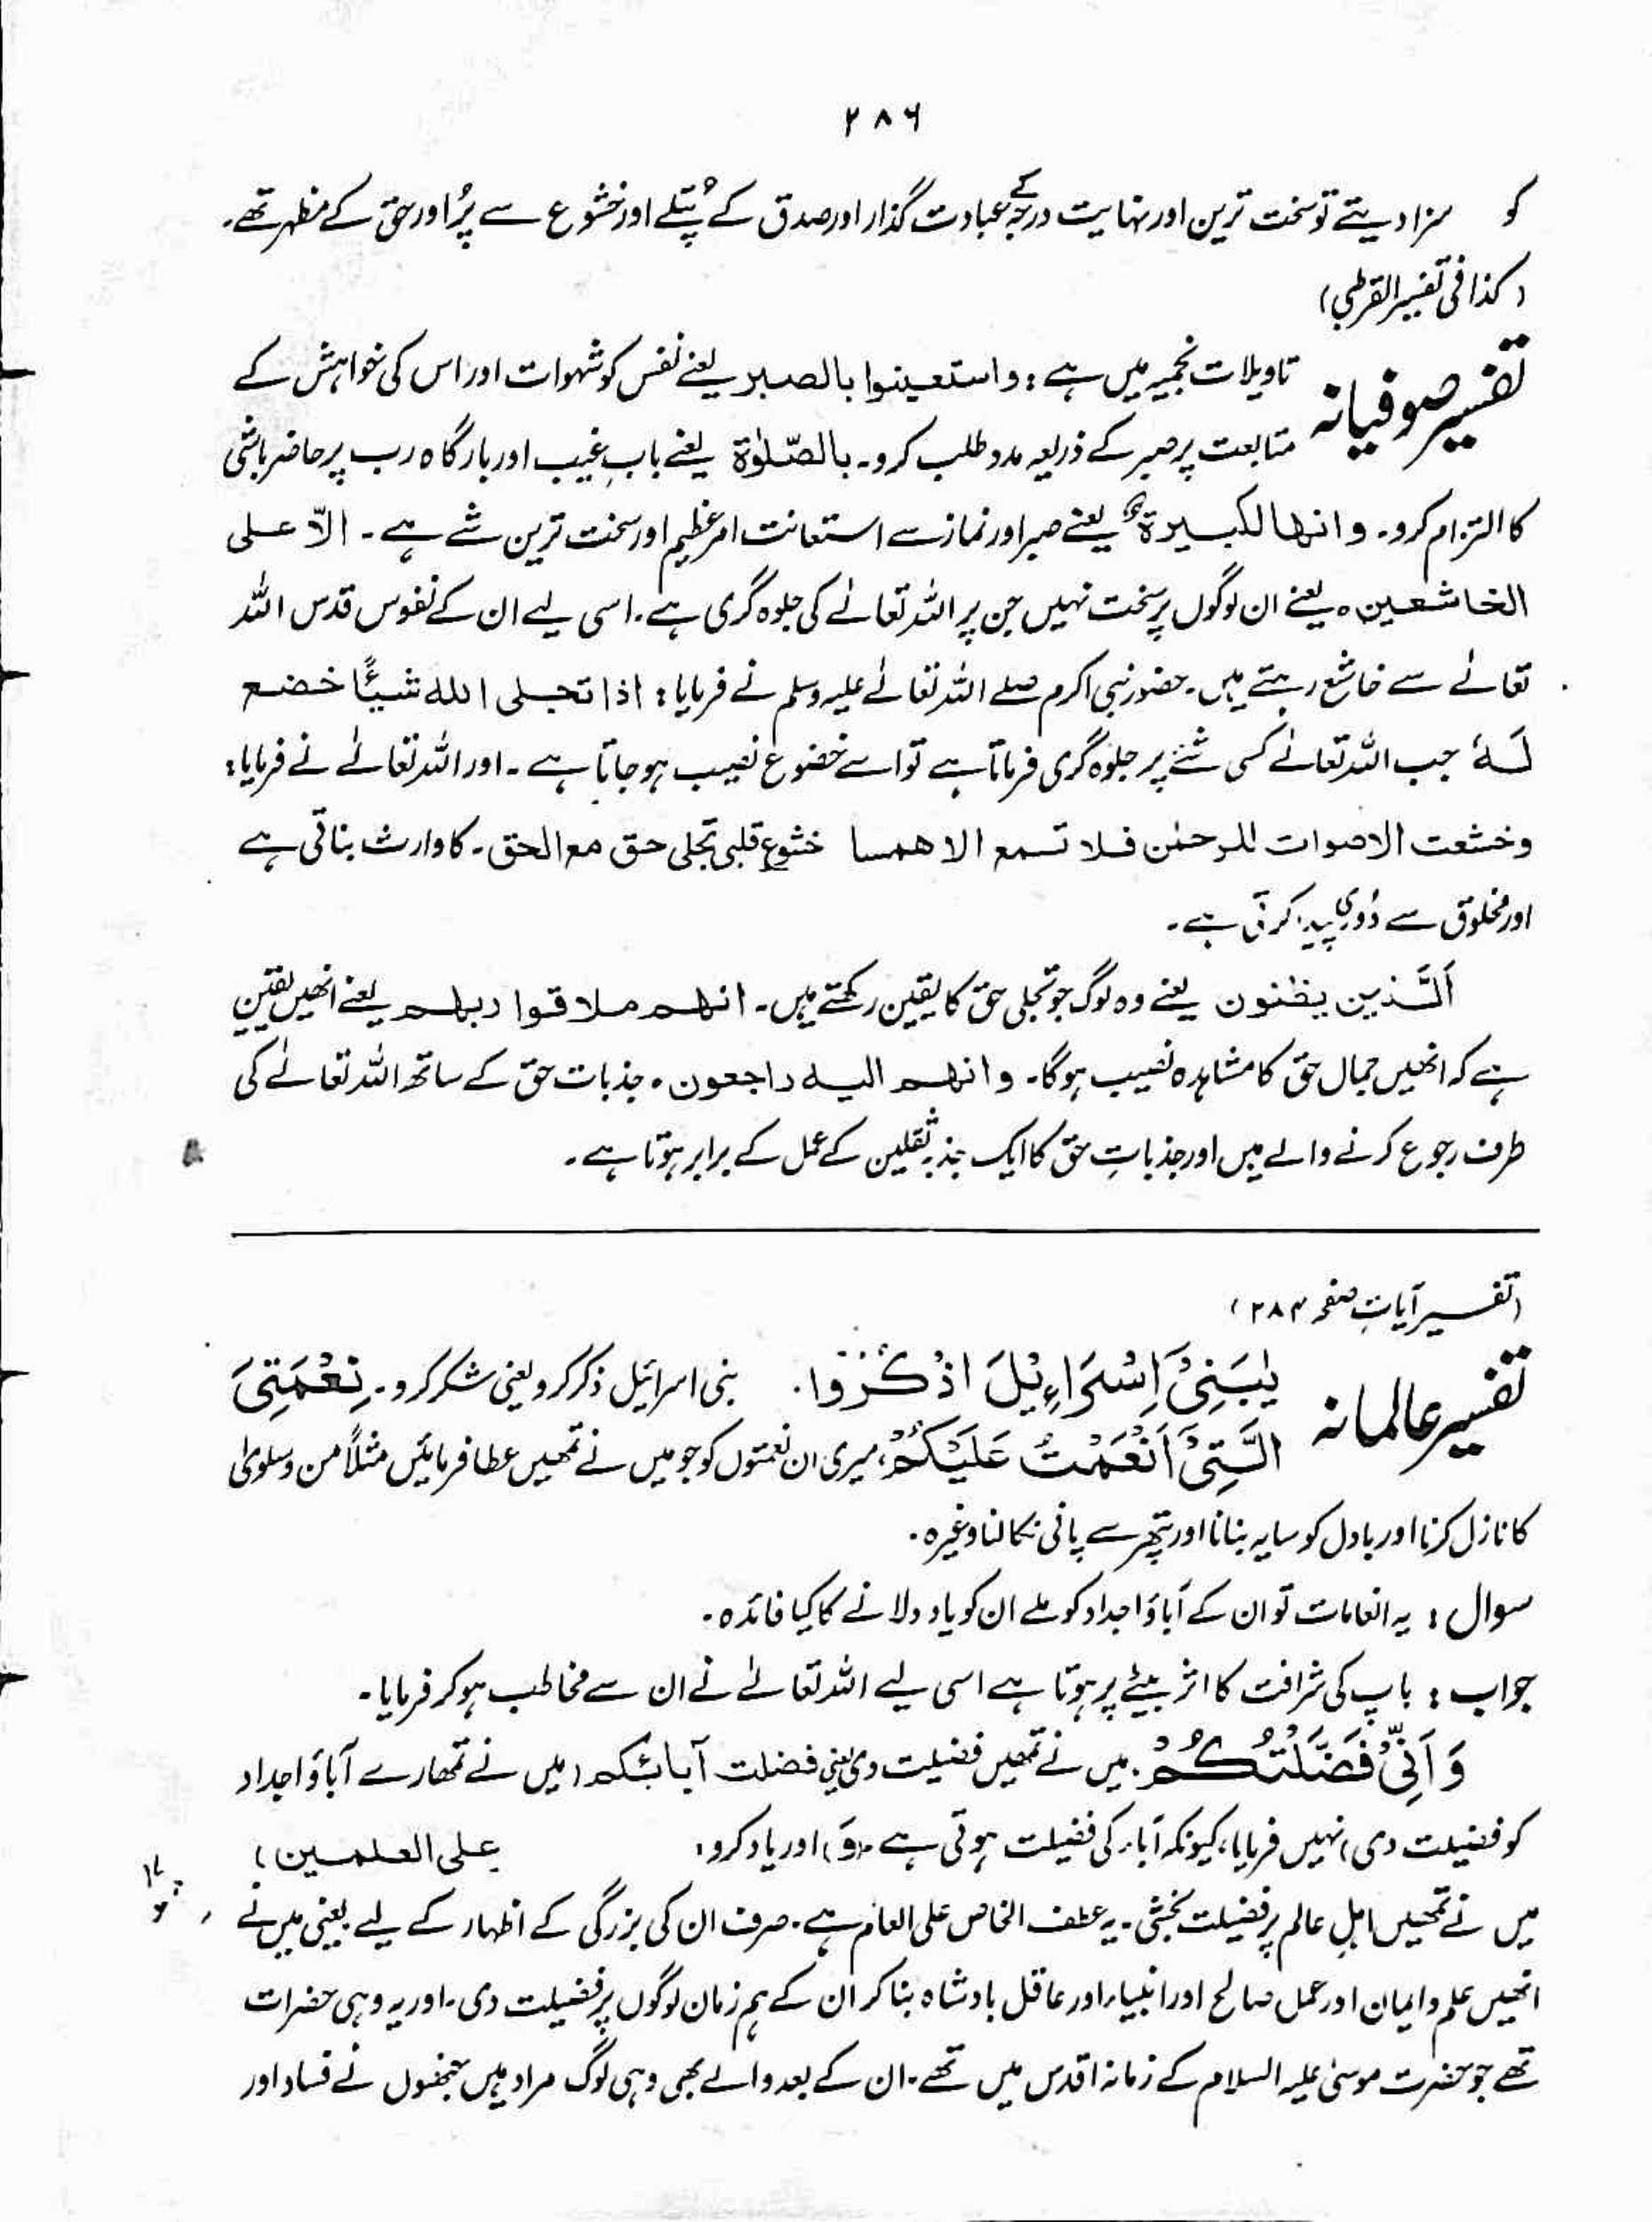 ۲۸۶
کو سزا دیتے تو سخت ترین اور نہایت درجہ کے عبادت گذار اور صدق کے پُتلے اور خشوع سے پُر اور حق کے مظہر تھے۔
(کذا فی تفسیر القرطبی)
تفسیر صوفیانہ
تاویلات نجمیہ میں ہے : واستعینوا بالصبر یعنے نفس کو شہوات اور اس کی خواہش کے
متابعت پر صبر کے ذریعہ مدد طلب کرو۔ بالصّلوٰۃ یعنے بابِ غیب اور بارگاہ رب پر حاضر باشی
کا التزام کرو۔ وانھا لکبیرۃ یعنے صبر اور نماز سے استعانت امر عظیم اور سخت ترین شے ہے۔ الّا علی
الخاشعین ہ یعنے ان لوگوں پر سخت نہیں جن پر اللہ تعالےٰ کی جلوہ گری ہے۔ اسی لیے ان کے نفوس قدس اللہ
تعالےٰ سے خاشع رہتے ہیں۔ حضور نبی اکرم صلے اللہ تعالےٰ علیہ وسلم نے فرمایا : اذا تجلی اللہ شیئًا خضع
لَہٗ جب اللہ تعالےٰ کسی شئے پر جلوہ گری فرماتا ہے تو اسے خضوع نصیب ہو جاتا ہے۔ اور اللہ تعالےٰ نے فرمایا :
وخشعت الاصوات للرحمٰن فلا تسمع الا ھمسا خشوعِ قلبی تجلی حق مع الحق۔ کا وارث بناتی ہے
اور مخلوق سے دُوری پیدا کرتی ہے۔
اَلَّذین یظنون یعنے وہ لوگ جو تجلی حق کا یقین رکھتے ہیں۔ انھم ملاقوا ربھم یعنے انھیں یقین
ہے کہ انھیں جمال حق کا مشاہدہ نصیب ہوگا۔ وانھم الیہ راجعون ہ جذبات حق کے ساتھ اللہ تعالےٰ کی
طرف رجوع کرنے والے ہیں اور جذباتِ حق کا ایک جذبہ ثقلین کے عمل کے برابر ہوتا ہے۔
(تفسیر آیات صفحہ ۲۸۴)
تفسیر عالمانہ
یٰبَنِیْٓ اِسْرَآءِیْلَ اذْکُرُوْا۔ بنی اسرائیل ذکر کرو یعنی شکر کرو۔ نِعْمَتِیَ
الَّتِیْٓ اَنْعَمْتُ عَلَیْکُمْ، میری ان نعمتوں کو جو میں نے تمھیں عطا فرمائیں مثلاً من وسلویٰ
کا نازل کرنا اور بادل کو سایہ بنانا اور پتھر سے پانی نکالنا وغیرہ۔
سوال : یہ انعامات تو ان کے آباؤ اجداد کو ملے ان کو یاد دلانے کا کیا فائدہ۔
جواب : باپ کی شرافت کا اثر بیٹے پر ہوتا ہے اسی لیے اللہ تعالےٰ نے ان سے مخاطب ہو کر فرمایا۔
وَاَنِّیْ فَضَّلْتُکُمْ۔ میں نے تمھیں فضیلت دی یعنی فضلت آبائکم (میں نے تمھارے آباؤ اجداد
کو فضیلت دی) نہیں فرمایا، کیونکہ آباء کی فضیلت ہوتی ہے (وَ) اور یاد کرو، علی العلمین)
میں نے تمھیں اہلِ عالم پر فضیلت بخشی۔ یہ عطف الخاص علی العام ہے۔ صرف ان کی بزرگی کے اظہار کے لیے یعنی میں نے
انھیں علم و ایمان اور عمل صالح اور انبیاء اور عاقل بادشاہ بنا کر ان کے ہم زمان لوگوں پر فضیلت دی۔ اور یہ وہی حضرات
تھے جو حضرت موسیٰ علیہ السلام کے زمانہ اقدس میں تھے۔ ان کے بعد والے بھی وہی لوگ مراد ہیں جنھوں نے فساد اور